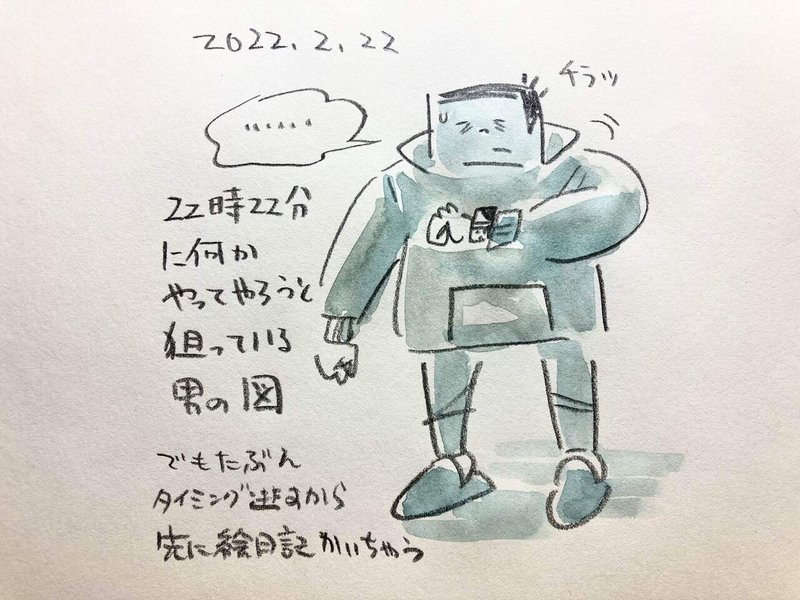 2022.2.22
チラッ
......
22時22分
に何か
やってやろうと
狙っている
男の図
でもたぶん
タイミング逃すから
先に絵日記かいちゃう